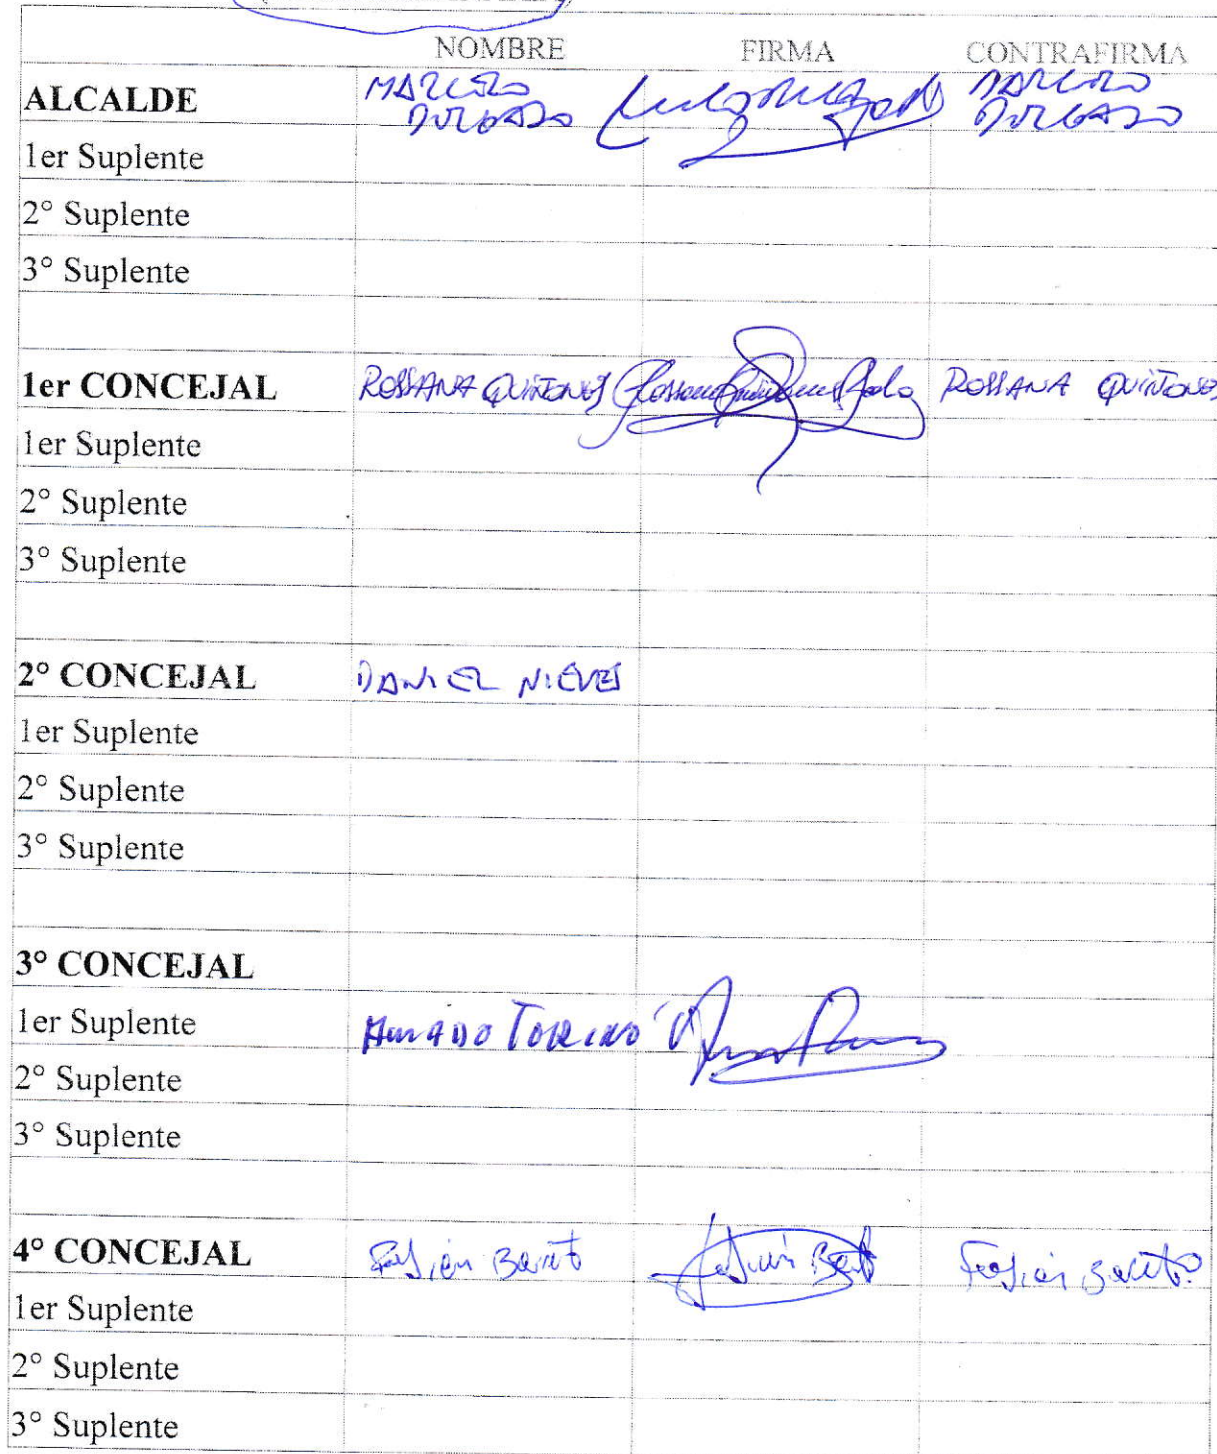 NOMBRE FIRMA CONTRAFIRMA
ALCALDE MARCELO DELGADO MARCELO DELGADO
1er Suplente
2° Suplente
3° Suplente
1er CONCEJAL ROSSANA QUIÑONES ROSSANA QUIÑONES
1er Suplente
2° Suplente
3° Suplente
2° CONCEJAL DANIEL NIEVES
1er Suplente
2° Suplente
3° Suplente
3° CONCEJAL
1er Suplente
2° Suplente
3° Suplente
4° CONCEJAL Fabián
1er Suplente
2° Suplente
3° Suplente